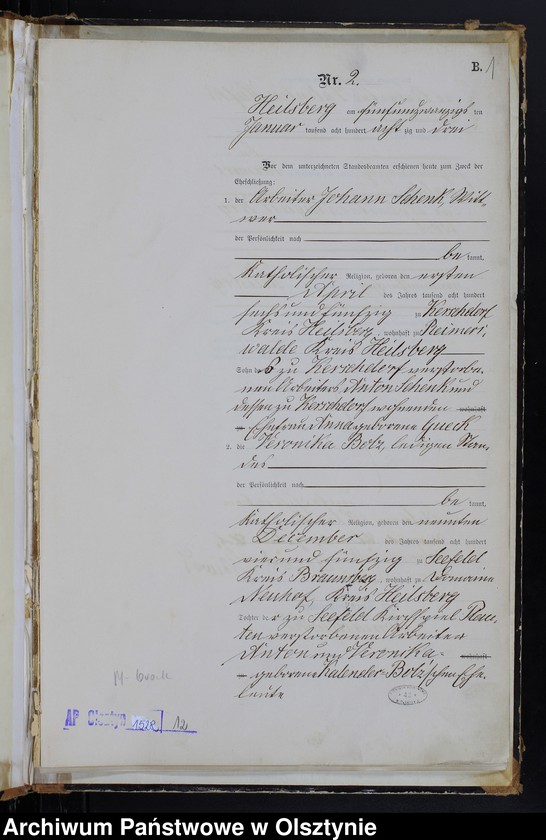 B. 1
Nr. 2.
Heilsberg am fünfundzwanzigsten
Januar tausend acht hundert achtzig und drei
Vor dem unterzeichneten Standesbeamten erschienen heute zum Zweck der
Eheschließung:
1. der Arbeiter Johann Schenk, Witt,
wer
der Persönlichkeit nach
be kannt,
Katholischer Religion, geboren den ersten
April des Jahres tausend acht hundert
sechs und fünfzig zu Kerschdorf
Kreis Heilsberg, wohnhaft zu Reimers,
walde Kreis Heilsberg
Sohn des zu Kerschdorf verstorbe,
nen Arbeiters Anton Schenk und
dessen zu Kerschdorf wohnenden wohnhaft
Ehefrau Anna geborene Gueck
2. die Veronika Bolz, ledigen Stan,
des
der Persönlichkeit nach
be kannt,
Katholischer Religion, geboren den neunten
December des Jahres tausend acht hundert
vier und fünfzig zu Seefeld
Kreis Braunsberg, wohnhaft zu Domaine
Neuhof, Kreis Heilsberg
Tochter der zu Seefeld Kirchspiel
verstorbenen Arbeiter
Anton und Veronika wohnhaft
geborene Kalender-Bolz'schen Ehe,
leute
AP Olsztyn 1528 12
Archiwum Państwowe w Olsztynie www.olsztyn.ap.gov.pl